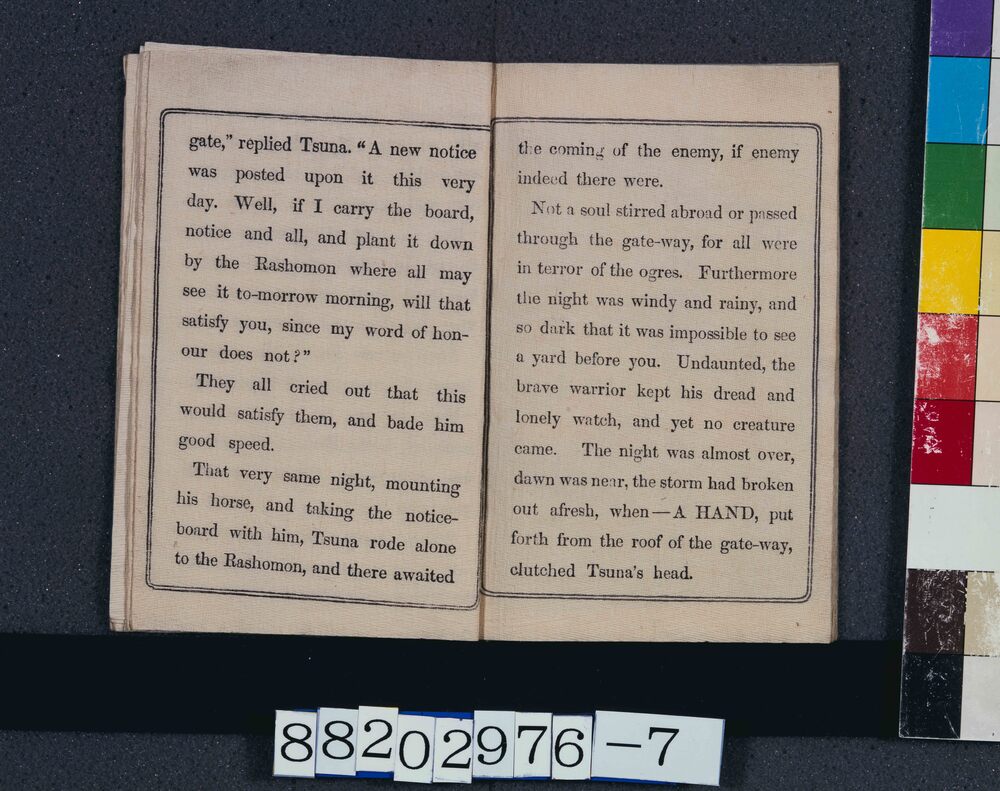 gate,” replied Tsuna. “A new notice
was posted upon it this very
day. Well, if I carry the board,
notice and all, and plant it down
by the Rashomon where all may
see it to-morrow morning, will that
satisfy you, since my word of hon-
our does not?”
They all cried out that this
would satisfy them, and bade him
good speed.
That very same night, mounting
his horse, and taking the notice-
board with him, Tsuna rode alone
to the Rashomon, and there awaited
the coming of the enemy, if enemy
indeed there were.
Not a soul stirred abroad or passed
through the gate-way, for all were
in terror of the ogres. Furthermore
the night was windy and rainy, and
so dark that it was impossible to see
a yard before you. Undaunted, the
brave warrior kept his dread and
lonely watch, and yet no creature
came. The night was almost over,
dawn was near, the storm had broken
out afresh, when—A HAND, put
forth from the roof of the gate-way,
clutched Tsuna's head.
88202976-7